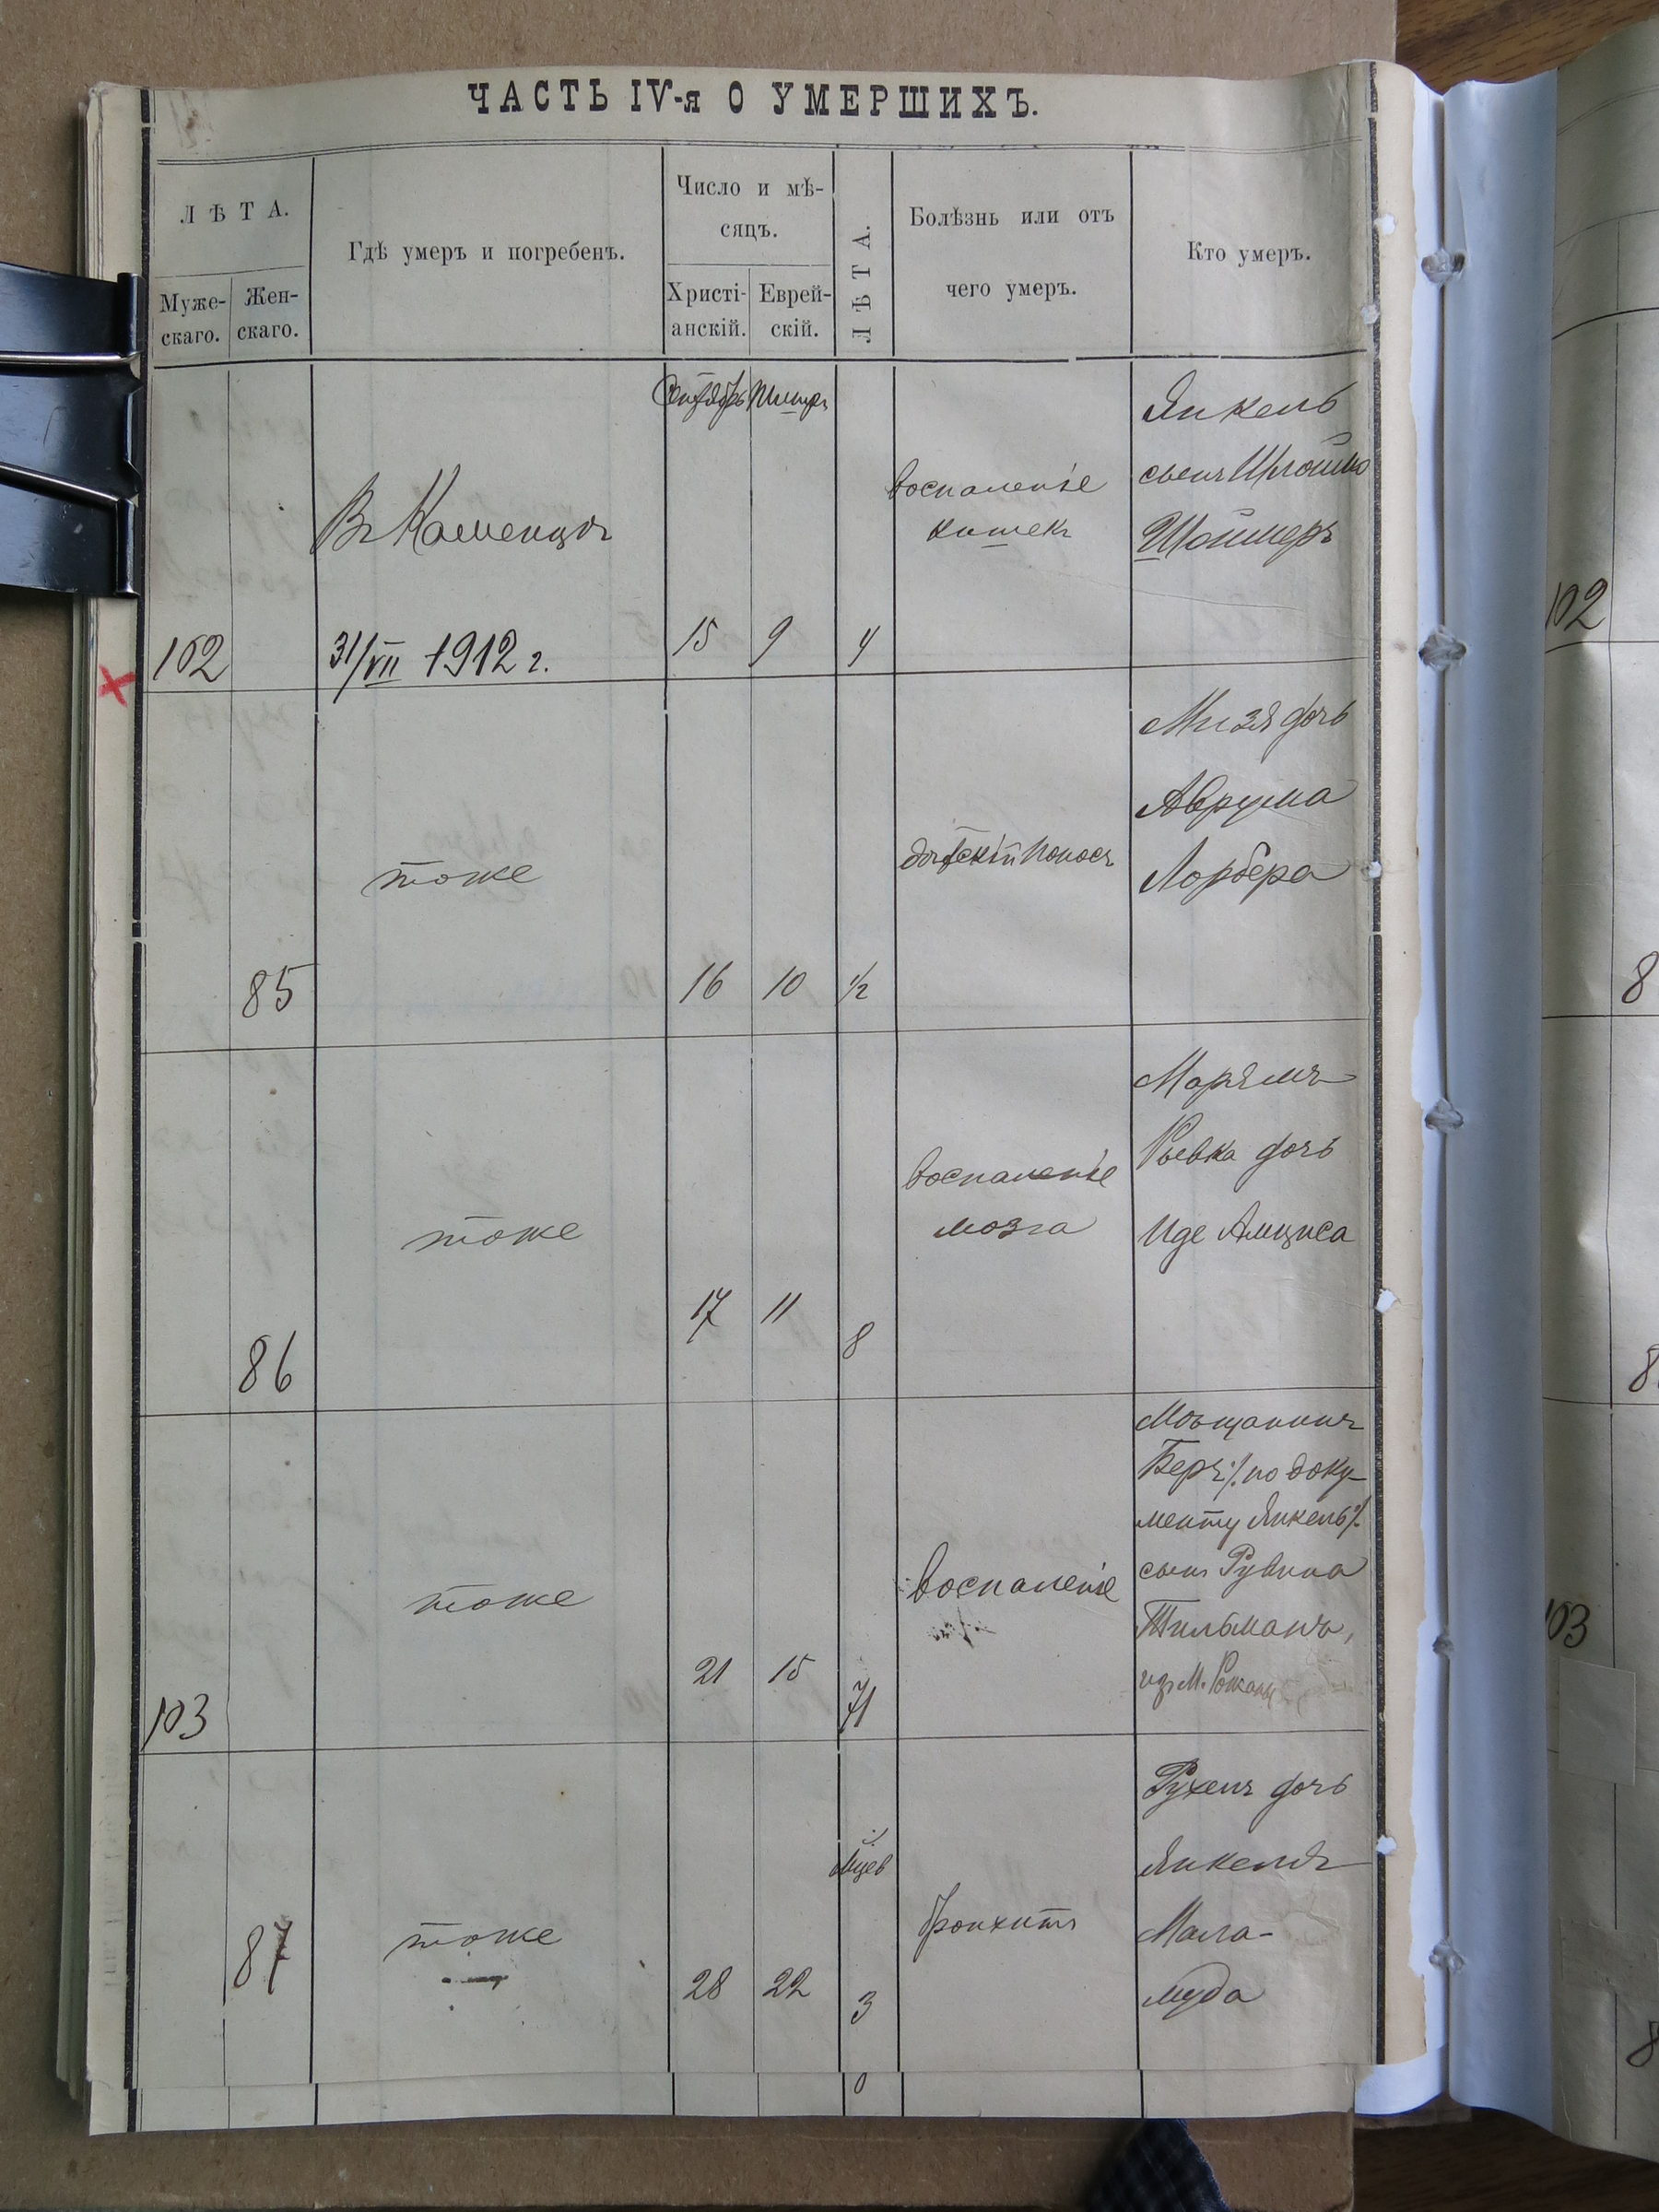 ЧАСТЬ IV-я О УМЕРШИХЪ.
ЛѢТА.
Муже-
скаго.
Жен-
скаго.
Гдѣ умеръ и погребенъ.
Число и мѣ-
сяцъ.
Христі-
анскій.
Еврей-
скій.
ЛѢТА.
Болѣзнь или отъ
чего умеръ.
Кто умеръ.
Сентябрь
102
Въ Каменцѣ
31/VII 1912 г.
15
9
4
воспаленіе
кишекъ
Янкель
сынъ Шлойма
Шоймеръ
85
тоже
16
10
1/2
дѣтскій поносъ
Мизя дочь
Аврума
Лорбера
86
тоже
17
11
8
воспаленіе
мозга
Марьямъ
Ривка дочь
Иде Амциса
103
тоже
21
15
71
воспаленіе
Мѣщанинъ
Беръ ·/. по доку-
менту Янкель ·/.
сынъ Рувина
Тильманъ,
изъ М.
87
тоже
28
22
Мцев
3
бронхитъ
Рухель дочь
Янкеля
Мала-
муда
102
8
8
103
8